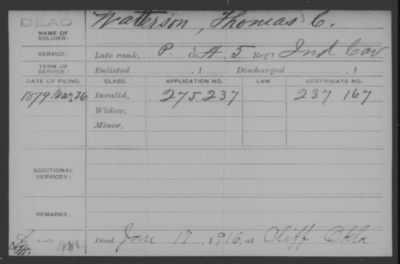 DEAD
NAME OF SOLDIER: Watterson, Thomas C.
SERVICE: Late rank, P. & A. 5 Reg't Ind Cav
TERM OF SERVICE: Enlisted , 1 Discharged , 1
DATE OF FILING. CLASS. APPLICATION NO. LAW. CERTIFICATE NO.
1879 Invalid, 275237 237 167
Widow,
Minor,
ADDITIONAL SERVICES:
REMARKS:
Died Jan 17, 1916, at Cliff Okla